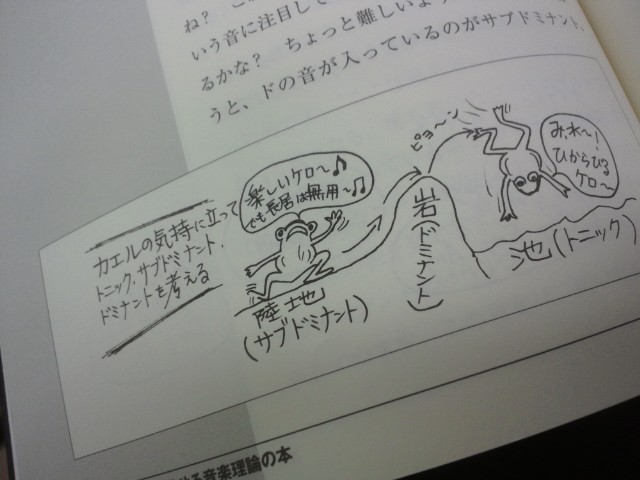 ね?
いう音に注目して
るかな? ちょっと難しいよう
うと、ドの音が入っているのがサブドミナント、
カエルの気持に立って
トニック、サブドミナント、
ドミナントを考える
楽しいケロ〜♪
でも長居は無用〜♫
陸地
(サブドミナント)
岩(ドミナント)
ピョ〜ン
み、水〜!
ひからびる
ケロ〜
池(トニック)
る音楽理論の本